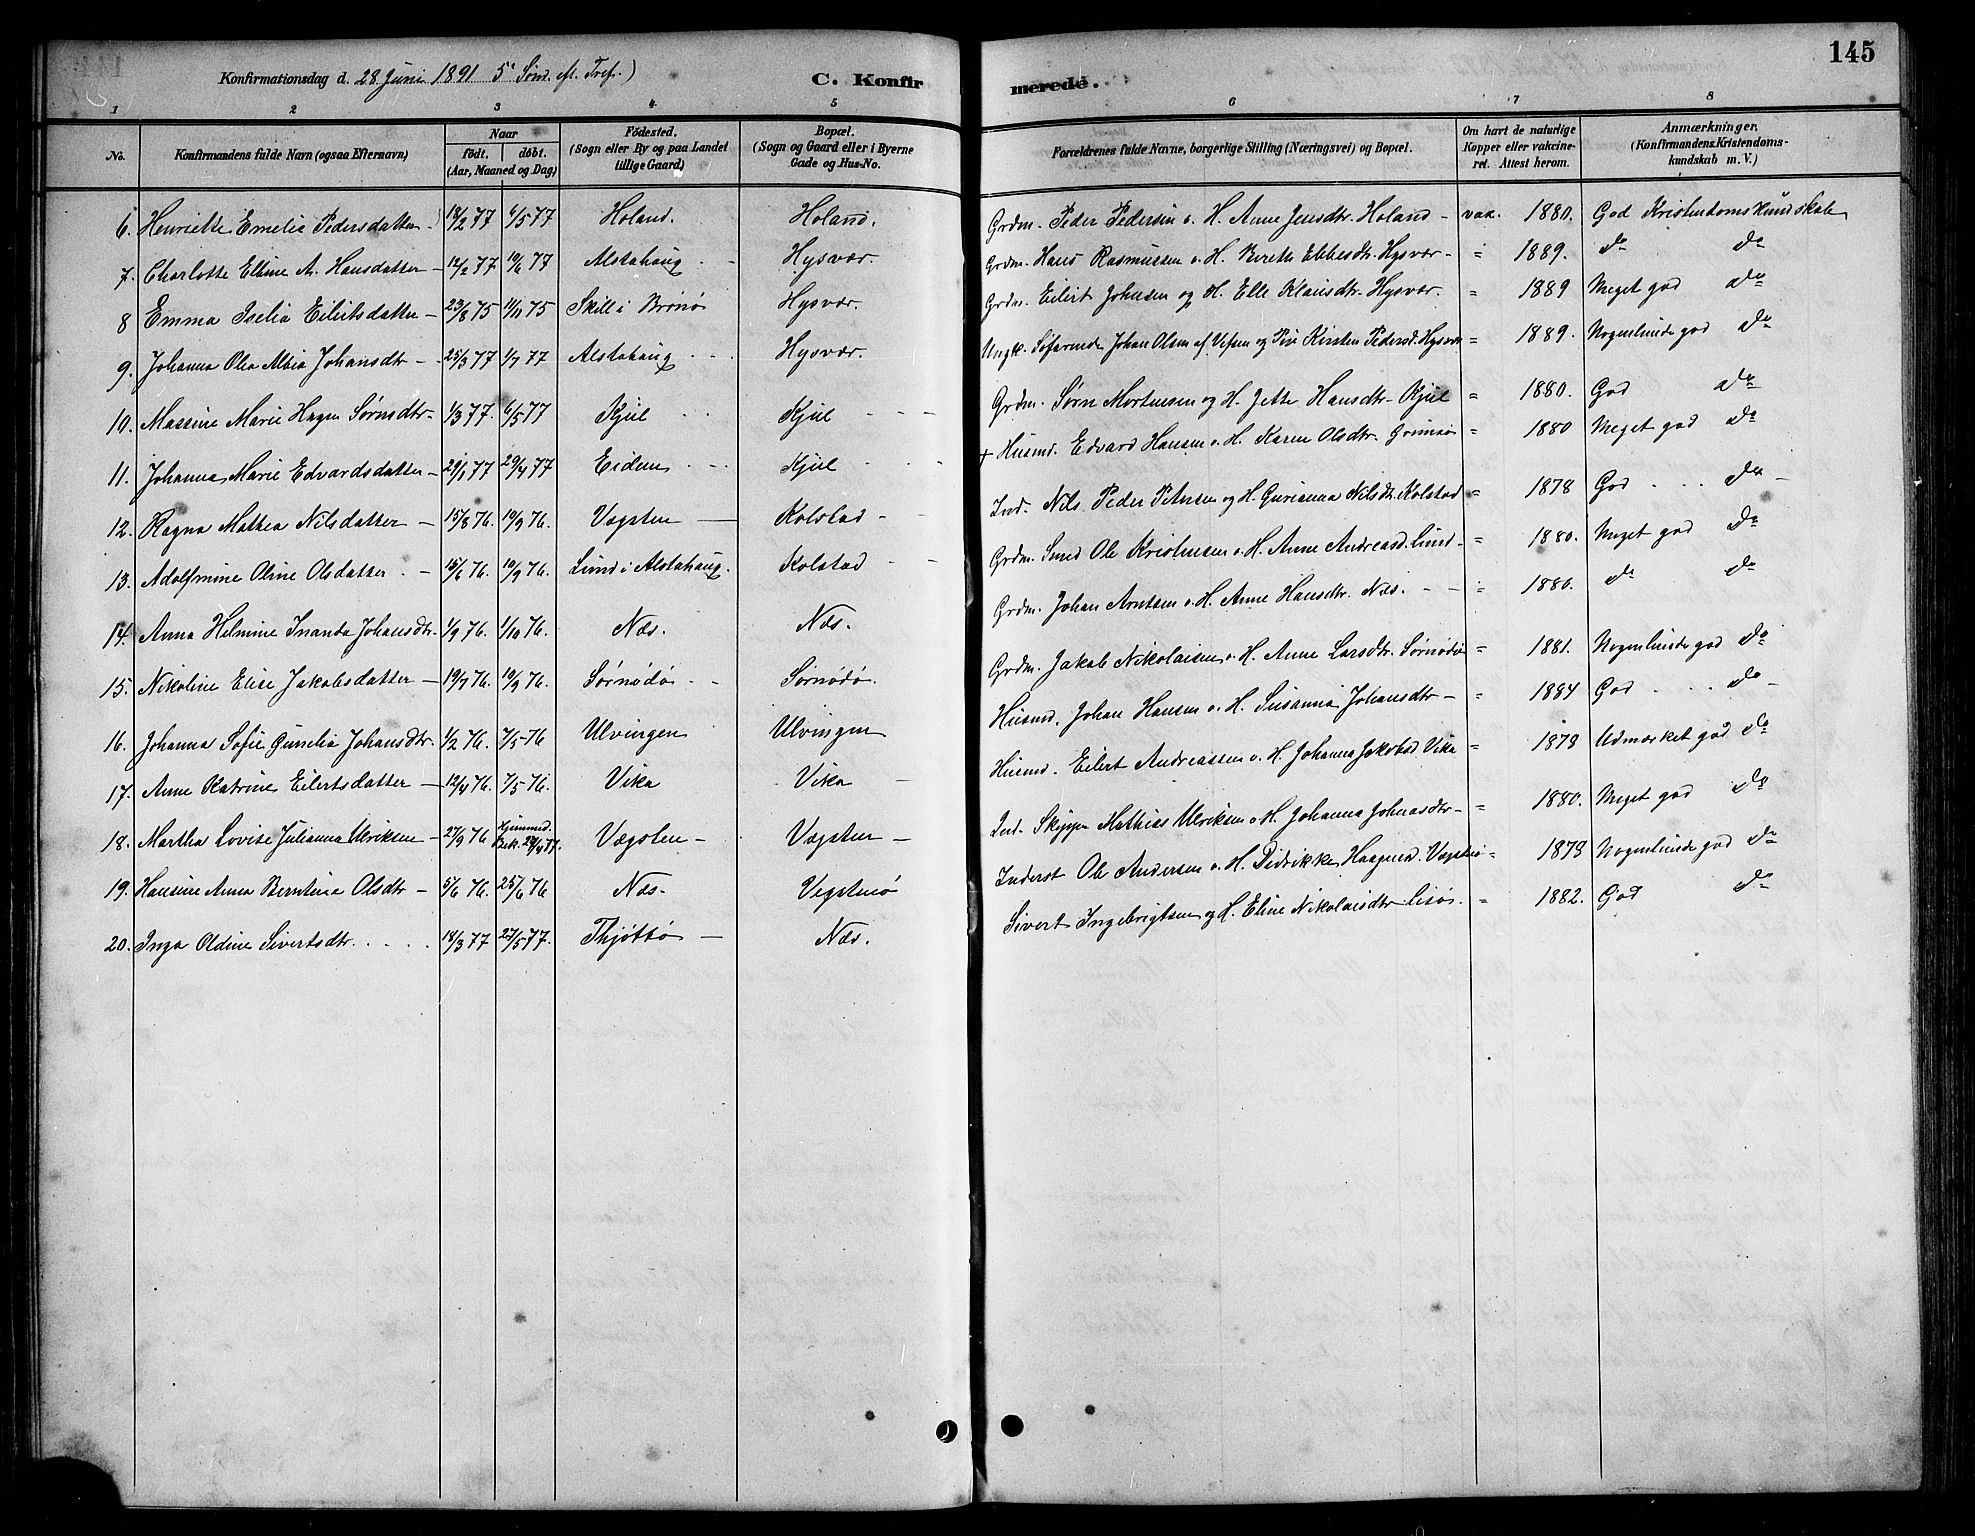 Konfirmationsdag d. 28 Juni 1891 5' Sønd. ef. Tref.)
C. Konfirmerede.
145
1 2 3 4 5 6 7 8
No.
Konfirmandens fulde Navn (ogsaa Efternavn)
Naar
født. døbt.
(Aar, Maaned og Dag)
Fødested.
(Sogn eller By og paa Landet
tillige Gaard)
Bopæl.
(Sogn og Gaard eller i Byerne
Gade og Hus-No.
Forældrenes fulde Navne, borgerlige Stilling (Næringsvei) og Bopæl.
Om havt de naturlige
Kopper eller vakcine-
ret. Attest herom.
Anmærkninger.
(Konfirmandens Kristendoms-
kundskab m. V.)
6. Henriette Emelie Pedersdatter 18/2 77 6/5 77 Holand. Holand. Grdm. Peder Pedersen o. H. Anne Jensdtr. Holand - vax. 1880. God Kristendomskundskab
7. Charlotte Eline A. Hansdatter - 12/2 77 10/6 77 Alstahaug - Hysvær. Grdm. Hans Rasmussen o. H. Bereth Ebbesdtr. Hysvær - " 1889. do do
8 Emma Iselia Eilertsdatter - 23/8 75 11/11 75 Skille i Brønø Hysvær. Grdm. Eilert Johnsen og H. Elle Klausdtr. Hysvær. " 1889 Meget god do
9. Johanna Olea Albia Johansdtr - 25/3 77 1/7 77 Alstahaug - Hysvær. Ungk. Søfarende Johan Olsen af Vefsen og Pige Kirsten Pedersd. Hysvær " 1889. Nogenlunde god do
10. Massine Marie Hagen Sørnsdtr - 1/3 77. 6/5 77 Kjul Kjul Grdm. Sørn Mortensen og H. Jette Hansdtr. Kjul " 1880. God do
11. Johanna Marie Edvardsdatter - 29/1 77 29/4 77 Eidem Kjul + Husmd. Edvard Hansen o. H. Karen Olsdtr. Grimsø " 1880 Meget god do
12. Ragna Mathea Nilsdatter - 15/8 76. 10/9 76. Vægsten - Kolstad - Ind. Nils Peder Petersen og H. Gurianna Nilsdtr. Kolstad " 1878 God do -
13. Adolfmine Oline Olsdatter - 15/6 76. 10/9 76. Lund i Alstahaug. Kolstad Grdm. Smed Ole Kristensen o. H. Anne Andreasd. Lund - " 1880. Meget god do
14. Anna Helmine Inanda Johansdtr. 1/9 76. 1/10 76. Næs. Næs. Grdm. Johan Arntsen o. H. Anne Hansdtr. Næs. - - " 1880. do do
15. Nikoline Elise Jakobsdatter - 19/7 76. 10/9 76. Sørnødø - Sørnødø. Grdm. Jakob Nikolaisen o. H. Anne Larsdtr. Sørnødø " 1881. Nogenlunde god do
16. Johanna Sofie Gunelia Johansdtr. 1/2 76. 7/5 76 Ulvingen Ulvingen Husmd. Johan Hansen o. H. Susanna Johansdtr - " 1884 God do -
17. Anne Katrine Eilertsdatter - 12/4 76. 7/5 76. Vika Vika - Husmd. Eilert Andreassen o. H. Johanna Jakobsd. Vika " 1878 Udmærket god do
18. Martha Lovise Julianna Ulriksen - 27/9 76 Hjemmed. Bek. 29/4 77. Vægsten - Vægsten - Ind. Skipper Mathias Ulriksen o. H. Johanna Johnasdtr - " 1880. Meget god do
19. Hansine Anna Berntine Olsdtr - 5/6 76. 25/6 76 Næs. Vegstenø Inderst Ole Andersen o. H. Didrikke Haagensd. Vægstenø " 1878 Nogenlunde god do
20. Inga Oldine Sivertsdtr. 18/3 77 27/5 77. Thjøttø - Næs. Sivert Ingebrigtsen og H. Eline Nikolaisdtr. " 1882. God do